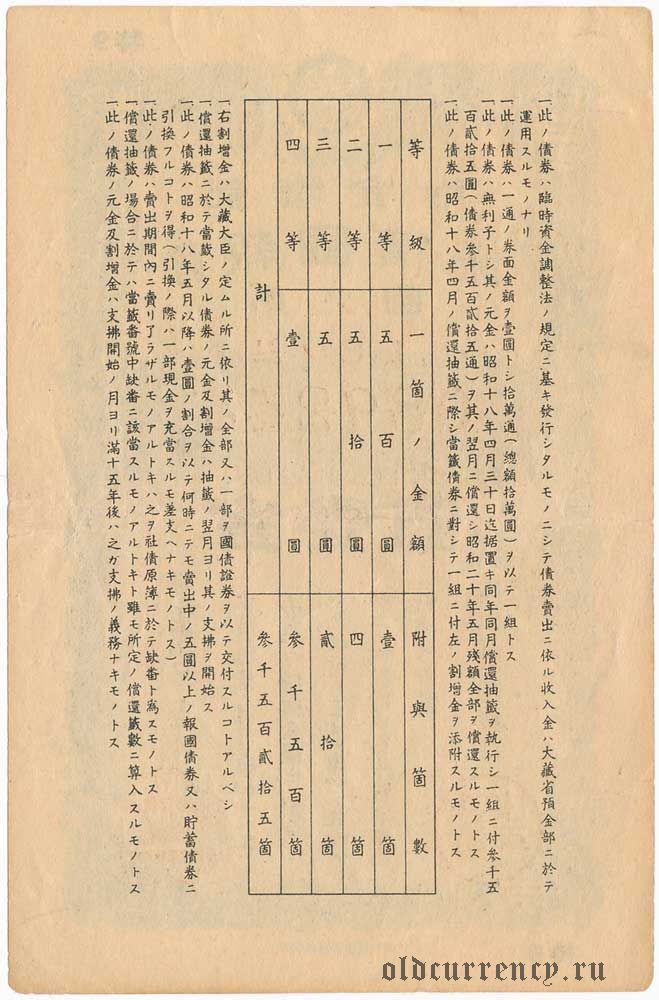 一此ノ債券ハ臨時資金調整法ノ規定ニ基キ發行シタルモノニシテ債券賣出ニ依ル收入金ハ大藏省預金部ニ於テ
運用スルモノナリ
一此ノ債券ハ一通ノ券面金額ヲ壹圓トシ拾萬通(總額拾萬圓)ヲ以テ一組トス
一此ノ債券ハ無利子トシ其ノ元金ハ昭和十八年四月三十日迄据置キ同年同月償還抽籤ヲ執行シ一組ニ付參千五
百貳拾五圓(債券參千五百貳拾五通)ヲ其ノ翌月ニ償還シ昭和二十年五月殘額全部ヲ償還スルモノトス
一此ノ債券ハ昭和十八年四月ノ償還抽籤ニ際シ當籤債券ニ對シテ一組ニ付左ノ割增金ヲ添附スルモノトス
等級 一箇ノ金額 附與箇數
一等 五百圓 壹箇
二等 五拾圓 四箇
三等 五圓 貳拾箇
四等 壹圓 參千五百箇
計 參千五百貳拾五箇
一右割增金ハ大藏大臣ノ定ムル所ニ依リ其ノ全部又ハ一部ヲ國債證券ヲ以テ交付スルコトアルベシ
一償還抽籤ニ於テ當籤シタル債券ノ元金及割增金ハ抽籤ノ翌月ヨリ其ノ支拂ヲ開始ス
一此ノ債券ハ昭和十八年五月以降ハ壹圓ノ割合ヲ以テ何時ニテモ賣出中ノ五圓以上ノ報國債券又ハ貯蓄債券ニ
引換フルコトヲ得(引換ノ際ハ一部現金ヲ充當スルモ差支ヘナキモノトス)
一此ノ債券ハ賣出期間內ニ賣リ了ラザルモノアルトキハ之ヲ社債原簿ニ於テ缺番ト爲スモノトス
一償還抽籤ノ場合ニ於テハ當籤番號中缺番ニ該當スルモノアルトキト雖モ所定ノ償還籤數ニ算入スルモノトス
一此ノ債券ノ元金及割增金ハ支拂開始ノ月ヨリ滿十五年後ハ之ガ支拂ノ義務ナキモノトス
oldcurrency.ru